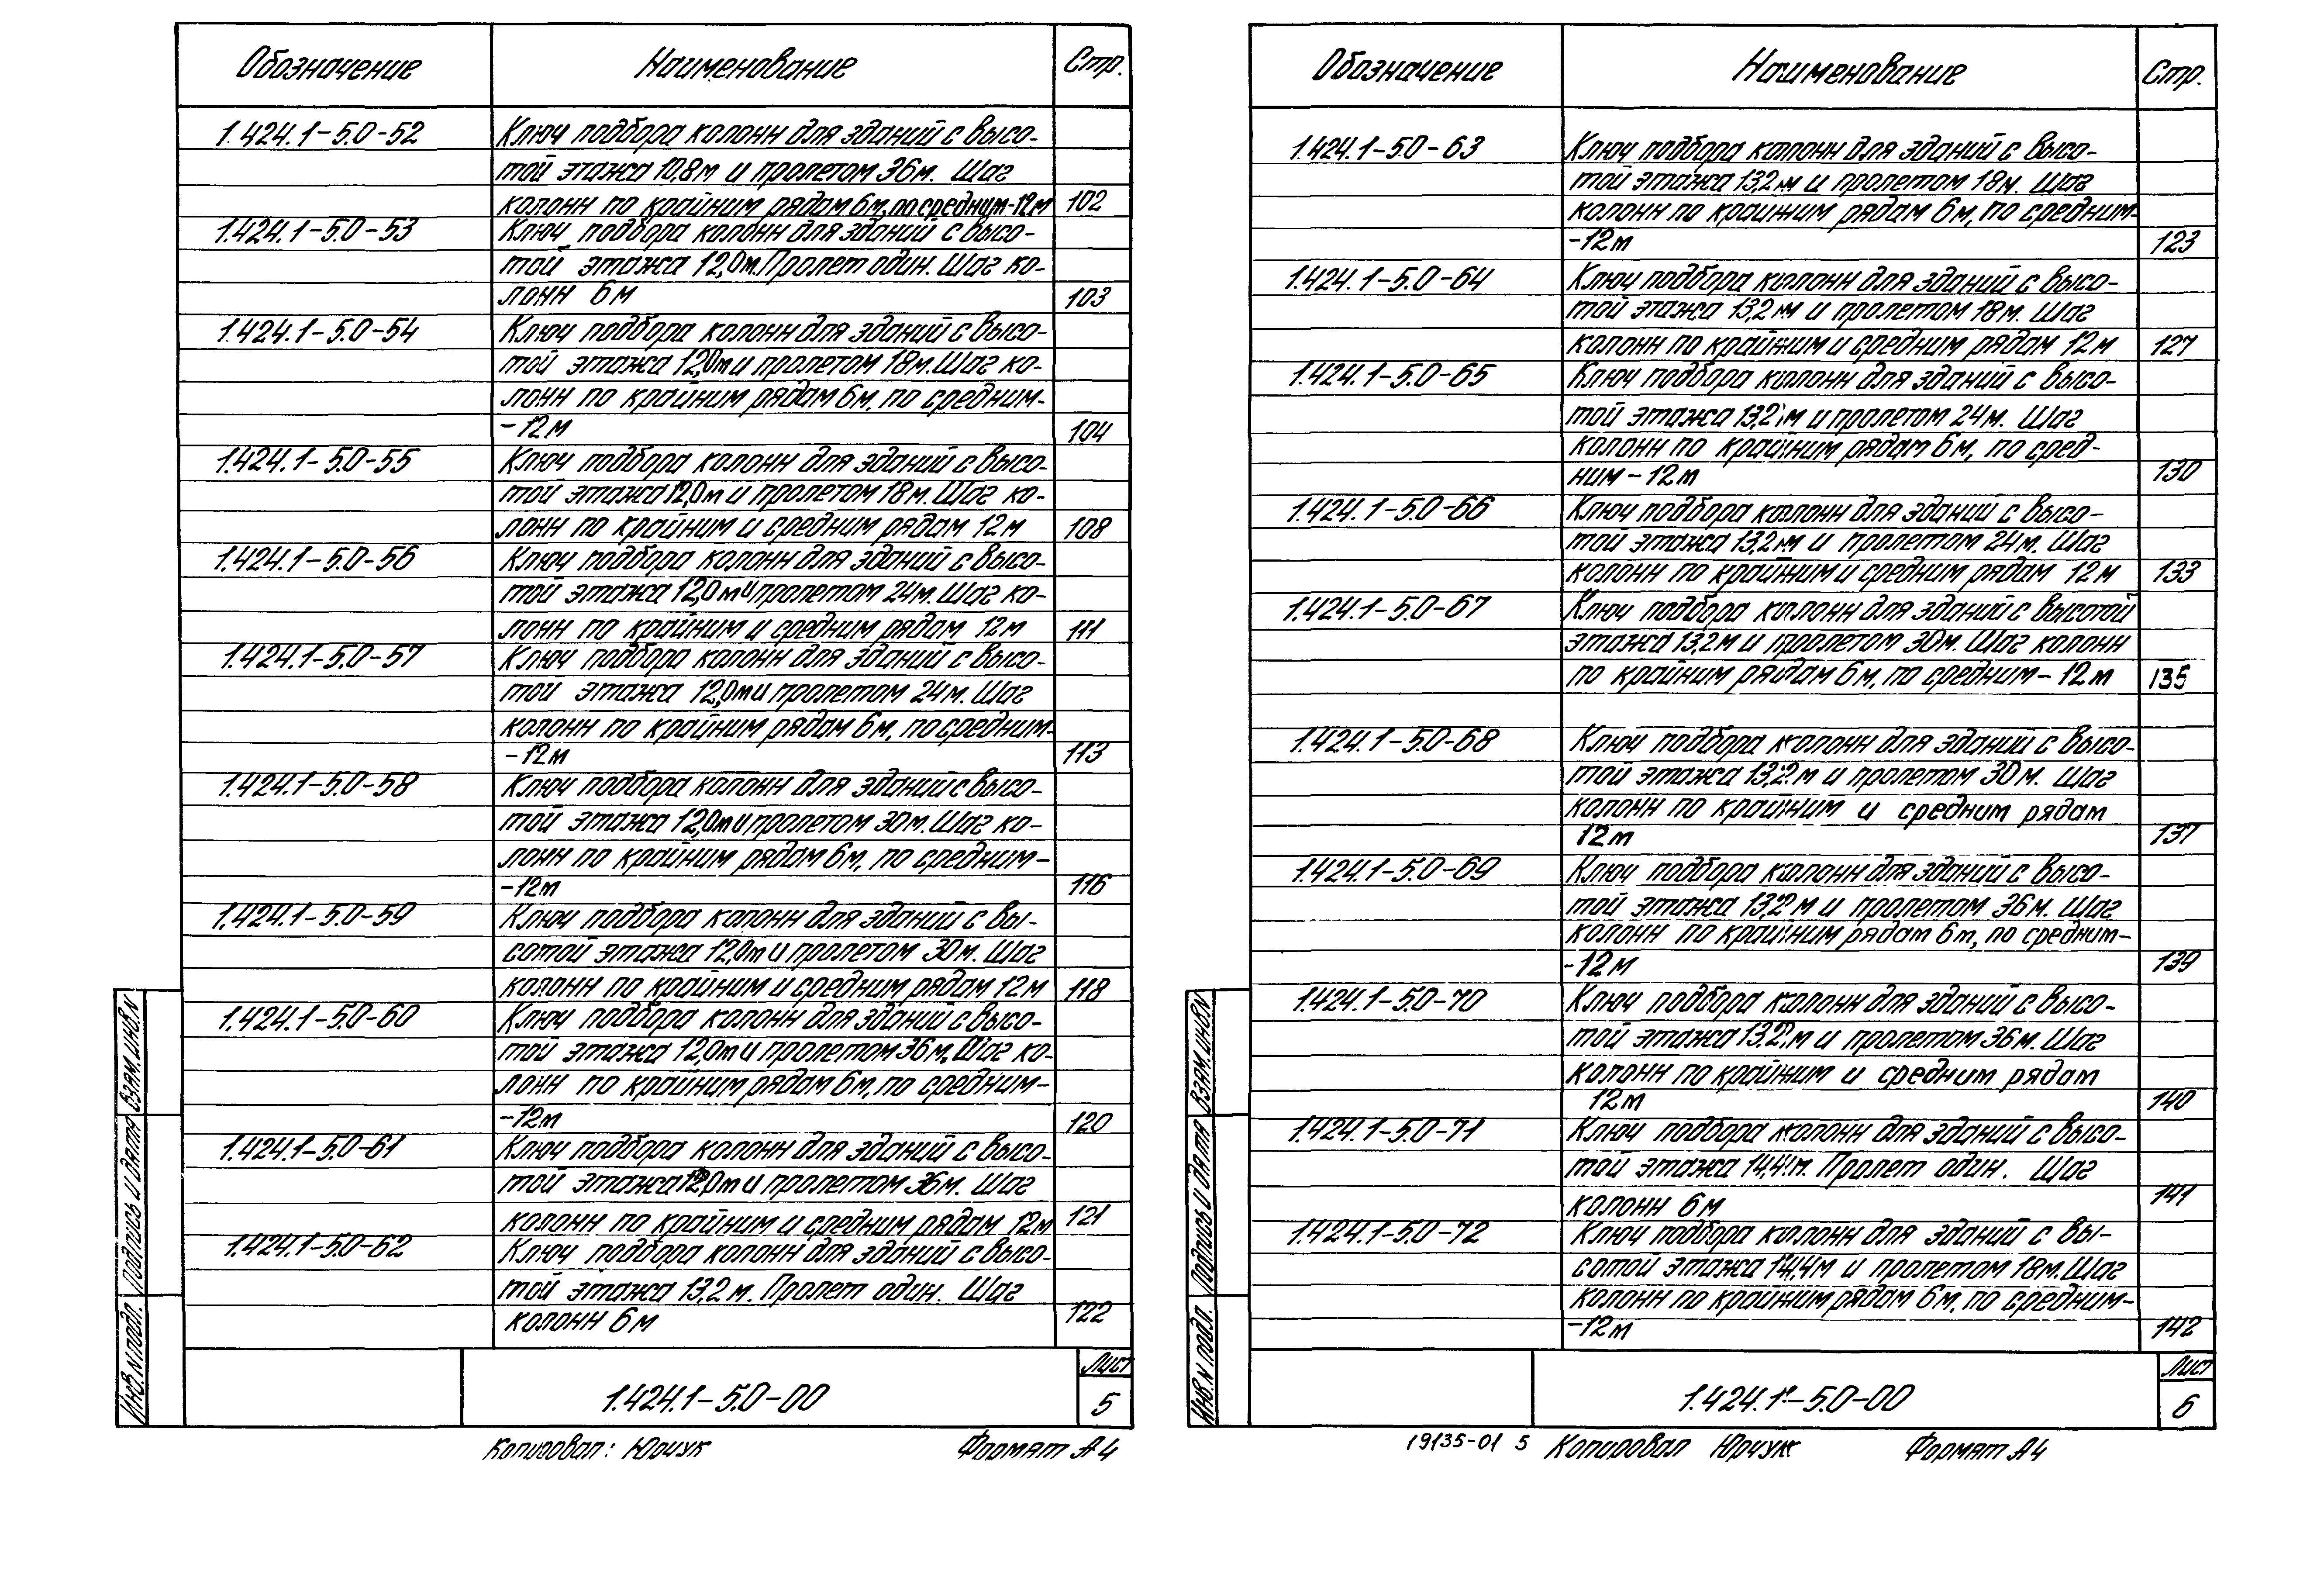 Обозначение Наименование Стр.
1.424.1-5.0-52 Ключ подбора колонн для зданий с высо-
той этажа 10,8м и пролетом 36м. Шаг
колонн по крайним рядам 6м, по средним-12м 102
1.424.1-5.0-53 Ключ подбора колонн для зданий с высо-
той этажа 12,0м. Пролет один. Шаг ко-
лонн 6м 103
1.424.1-5.0-54 Ключ подбора колонн для зданий с высо-
той этажа 12,0м и пролетом 18м. Шаг ко-
лонн по крайним рядам 6м, по средним-
-12м 104
1.424.1-5.0-55 Ключ подбора колонн для зданий с высо-
той этажа 12,0м и пролетом 18м. Шаг ко-
лонн по крайним и средним рядам 12м 108
1.424.1-5.0-56 Ключ подбора колонн для зданий с высо-
той этажа 12,0м и пролетом 24м. Шаг ко-
лонн по крайним и средним рядам 12м 111
1.424.1-5.0-57 Ключ подбора колонн для зданий с высо-
той этажа 12,0м и пролетом 24м. Шаг
колонн по крайним рядам 6м, по средним-
-12м 113
1.424.1-5.0-58 Ключ подбора колонн для зданий с высо-
той этажа 12,0м и пролетом 30м. Шаг ко-
лонн по крайним рядам 6м, по средним-
-12м 116
1.424.1-5.0-59 Ключ подбора колонн для зданий с вы-
сотой этажа 12,0м и пролетом 30м. Шаг
колонн по крайним и средним рядам 12м 118
1.424.1-5.0-60 Ключ подбора колонн для зданий с высо-
той этажа 12,0м и пролетом 36м. Шаг ко-
лонн по крайним рядам 6м, по средним-
-12м 120
1.424.1-5.0-61 Ключ подбора колонн для зданий с высо-
той этажа 12,0м и пролетом 36м. Шаг
колонн по крайним и средним рядам 12м 121
1.424.1-5.0-62 Ключ подбора колонн для зданий с высо-
той этажа 13,2м. Пролет один. Шаг
колонн 6м 122
Инв.N подл. Подпись и дата Взам.инв.N
1.424.1-5.0-00 Лист
5
Копировал: Юрчук Формат А4
Обозначение Наименование Стр.
1.424.1-5.0-63 Ключ подбора колонн для зданий с высо-
той этажа 13,2м и пролетом 18м. Шаг
колонн по крайним рядам 6м, по средним-
-12м 123
1.424.1-5.0-64 Ключ подбора колонн для зданий с высо-
той этажа 13,2м и пролетом 18м. Шаг
колонн по крайним и средним рядам 12м 127
1.424.1-5.0-65 Ключ подбора колонн для зданий с высо-
той этажа 13,2м и пролетом 24м. Шаг
колонн по крайним рядам 6м, по сред-
ним-12м 130
1.424.1-5.0-66 Ключ подбора колонн для зданий с высо-
той этажа 13,2м и пролетом 24м. Шаг
колонн по крайним и средним рядам 12м 133
1.424.1-5.0-67 Ключ подбора колонн для зданий с высотой
этажа 13,2м и пролетом 30м. Шаг колонн
по крайним рядам 6м, по средним-12м 135
1.424.1-5.0-68 Ключ подбора колонн для зданий с высо-
той этажа 13,2м и пролетом 30м. Шаг
колонн по крайним и средним рядам
12м 137
1.424.1-5.0-69 Ключ подбора колонн для зданий с высо-
той этажа 13,2м и пролетом 36м. Шаг
колонн по крайним рядам 6м, по средним-
-12м 139
1.424.1-5.0-70 Ключ подбора колонн для зданий с высо-
той этажа 13,2м и пролетом 36м. Шаг
колонн по крайним и средним рядам
12м 140
1.424.1-5.0-71 Ключ подбора колонн для зданий с высо-
той этажа 14,4м. Пролет один. Шаг
колонн 6м 141
1.424.1-5.0-72 Ключ подбора колонн для зданий с вы-
сотой этажа 14,4м и пролетом 18м. Шаг
колонн по крайним рядам 6м, по средним-
-12м 142
Инв.N подл. Подпись и дата Взам.инв.N
1.424.1-5.0-00 Лист
6
19135-01 5 Копировал Юрчук Формат А4